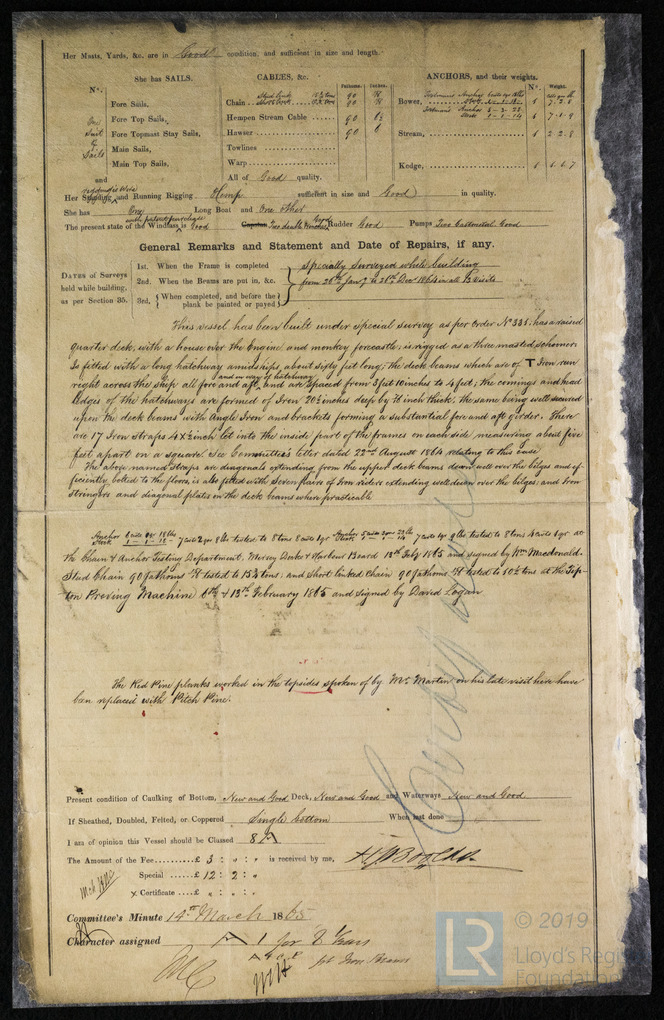 Her Masts, Yards, &c. are in Good condition, and sufficient in size and length.
She has SAILS.
N°.
One
Suit
of
Sails
Fore Sails,
Fore Top Sails,
Fore Topmast Stay Sails,
Main Sails,
Main Top Sails,
and
CABLES, &c.
Fathoms. Inches.
Chain Stud Link 90
Short Link 90
Hempen Stream Cable 90 6½
Hawser 90 6
Towlines
Warp
All of Good quality.
ANCHORS, and their weights.
N°. Weight.
Bower, 1 7 . 2 . 8
1 7 . 1 . 9
Stream, 1 2 . 2 . 8
Kedge, 1 1 . 0 . 7
Her Standing and Running Rigging Hemp sufficient in size and Good in quality.
She has One Long Boat and One other
The present state of the Windlass is Good with patent purchase Capstan Two double Winches Good Rudder Good Pumps Two Good
General Remarks and Statement and Date of Repairs, if any.
DATES of Surveys
held while building,
as per Section 35.
1st. When the Frame is completed
2nd. When the Beams are put in, &c.
3rd, When completed, and before the
plank be painted or payed
Specially Surveyed while building
from 26th Jany to 31st Decr 1864 in all 13 visits
This vessel has been built under special survey as per Order N° 335: has a raised
quarter deck, with a house over the Engine and monkey forecastle; is rigged as a three masted schooner.
Is fitted with a long hatchway amidships, about sixty feet long; the deck beams which are of T Iron run
right across the ship all fore and aft, and in way of hatchway and are spaced from 3 feet 10 inches to 4 feet; the comings and head
ledges of the hatchways are formed of Iron 20½ inches deep by ½ inch thick, the same being well secured
upon the deck beams with Angle Iron and brackets forming a substantial fore and aft girder. There
are 17 Iron straps 4 x ½ inch let into the inside part of the frames on each side, measuring about five
feet apart on a square. See Committee's letter dated 22nd August 1864 relating to this case
The above named straps are diagonals extending from the upper deck beams down well over the bilges and ef-
ficiently bolted to the floors, is also fitted with Seven pairs of Iron riders extending well down over the bilges, and Iron
stringers and diagonal plates on the deck beams where practicable
Anchor Stock 7 cwt 2 qrs 8 lbs tested to 8 tons 8 cwts 1 qr Anchor 7 cwts 1 qr 9 lbs tested to 8 tons 4 cwts 1 qr at
the Chain & Anchor Testing Department, Mersey Docks & Harbour Board 13th Feby 1865 and signed by Wm Macdonald.
Stud Chain 90 fathoms tested to 15¾ tons, and short linked chain 90 fathoms tested to 10½ tons at the Tip-
ton Proving Machine 6th & 13th February 1865 and signed by David Logan
The Red Pine planks worked in the topsides spoken of by Mr. Martin on his late visit here have
been replaced with Pitch Pine.
Present condition of Caulking of Bottom, New and Good Deck, New and Good and Waterways New and Good
If Sheathed, Doubled, Felted, or Coppered Single bottom When last done
I am of opinion this Vessel should be Classed 8 A
The Amount of the Fee £ 3 : " : " is received by me,
Special £ 12 : 2 : "
Certificate £ " : " : "
Committee's Minute 14th March 1865
Character assigned A 1 for 8 Years
pt Iron Beams
LR
© 2019
Lloyd's Register
Foundation